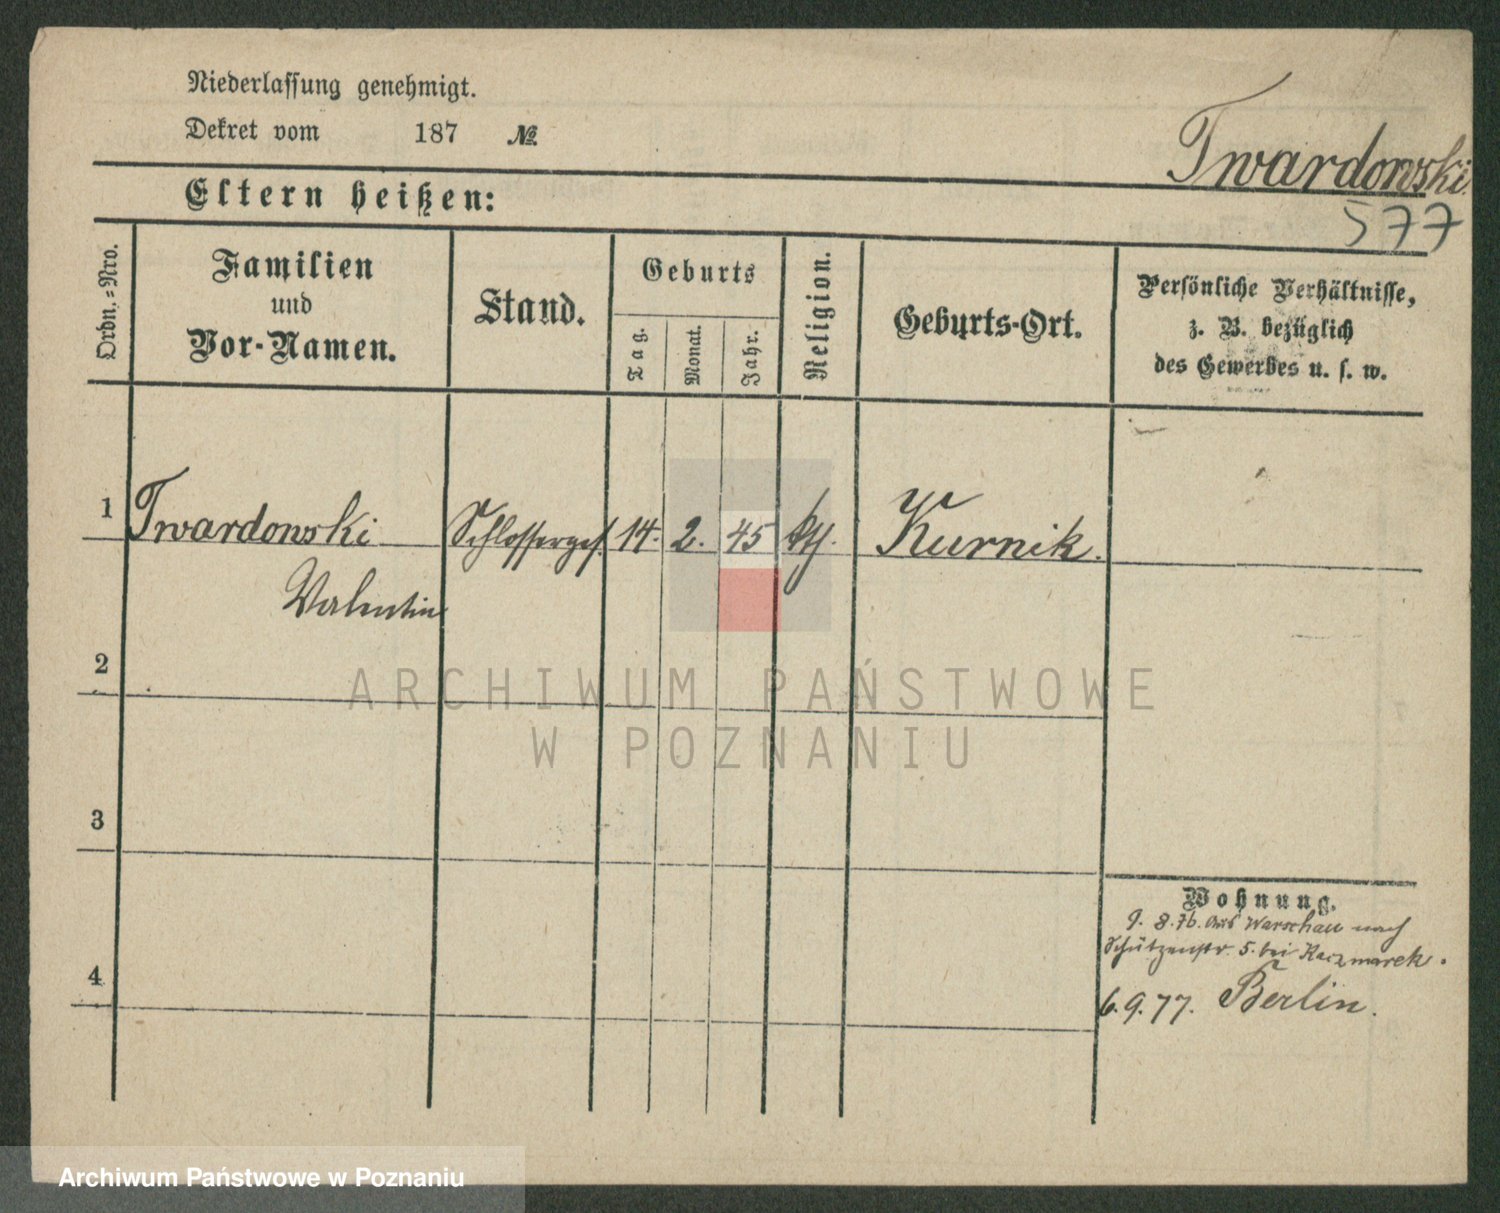 Niederlassung genehmigt.
Dekret vom 187 №
Twardowski
577
Eltern heißen:
Ordn.=Nro.
Familien
und
Vor-Namen.
Stand.
Geburts
Tag.
Monat.
Jahr.
Religion.
Geburts-Ort.
Persönliche Verhältnisse,
z. B. bezüglich
des Gewerbes u. s. w.
1 Twardowski Schlosserges. 14. 2. 45 kth. Kurnik.
Valentin
2
ARCHIWUM PAŃSTWOWE
W POZNANIU
3
Wohnung.
9. 8. 76. aus Warschau nach
Schützenstr. 5. bei Kaczmarek.
4
6. 9. 77. Berlin.
Archiwum Państwowe w Poznaniu